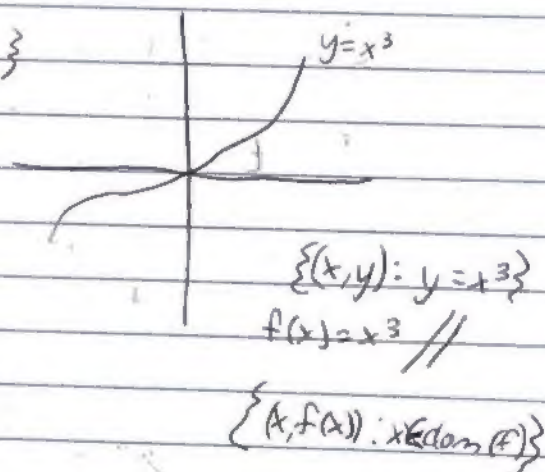 }
y=x³
{(x,y): y=x³}
f(x)=x³ //
{(x,f(x)): x∈dom(f)}